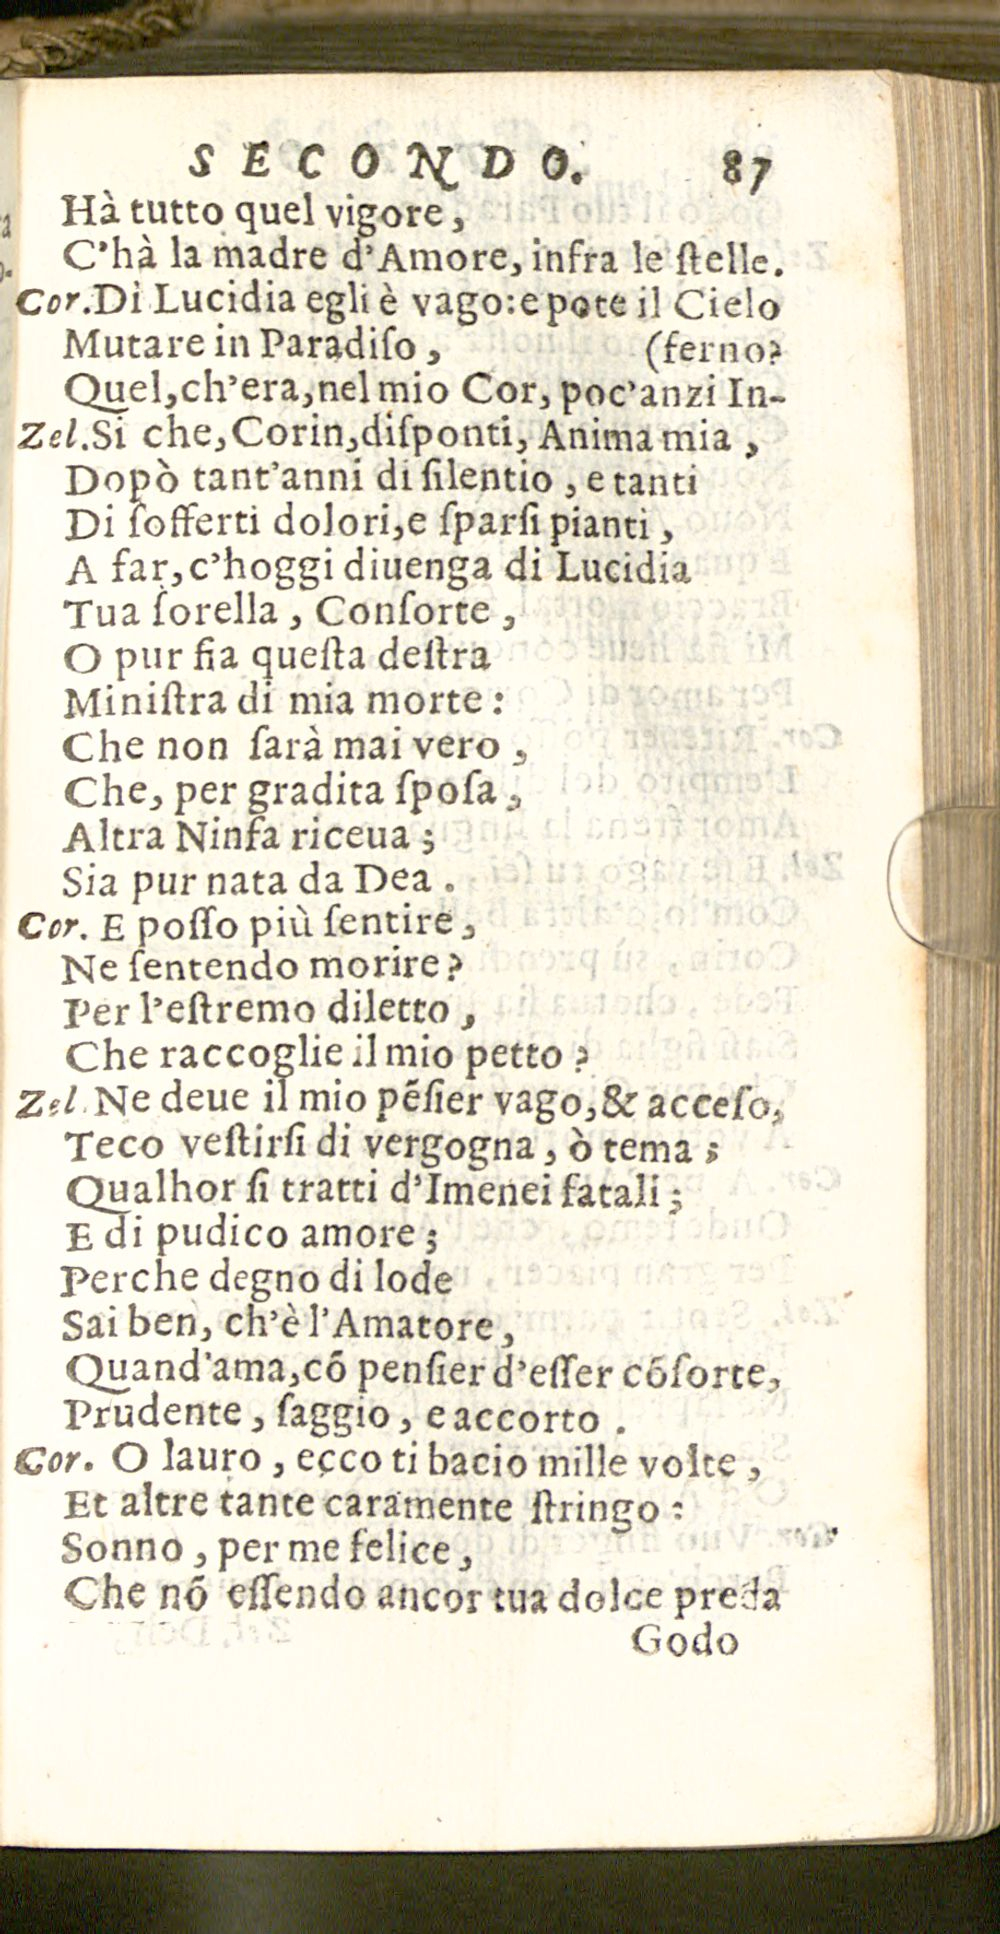 SECONDO. 87
Hà tutto quel vigore,
C'hà la madre d'Amore, infra le ſtelle.
Cor. Di Lucidia egli è vago: e pote il Cielo
Mutare in Paradiſo, (ferno?
Quel, ch'era, nel mio Cor, poc'anzi In-
Zel. Si che, Corin, diſponti, Anima mia,
Dopò tant'anni di ſilentio, e tanti
Di ſofferti dolori, e ſparſi pianti,
A far, c'hoggi diuenga di Lucidia
Tua ſorella, Conſorte,
O pur fia queſta deſtra
Miniſtra di mia morte:
Che non ſarà mai vero,
Che, per gradita ſpoſa,
Altra Ninfa riceua;
Sia pur nata da Dea.
Cor. E poſſo più ſentire,
Ne ſentendo morire?
Per l'eſtremo diletto,
Che raccoglie il mio petto?
Zel. Ne deue il mio pẽſier vago, & acceſo,
Teco veſtirſi di vergogna, ò tema;
Qualhor ſi tratti d'Imenei fatali;
E di pudico amore;
Perche degno di lode
Sai ben, ch'è l'Amatore,
Quand'ama, cõ penſier d'eſſer cõſorte,
Prudente, ſaggio, e accorto.
Cor. O lauro, ecco ti bacio mille volte,
Et altre tante caramente ſtringo:
Sonno, per me felice,
Che nõ eſſendo ancor tua dolce preda
Godo